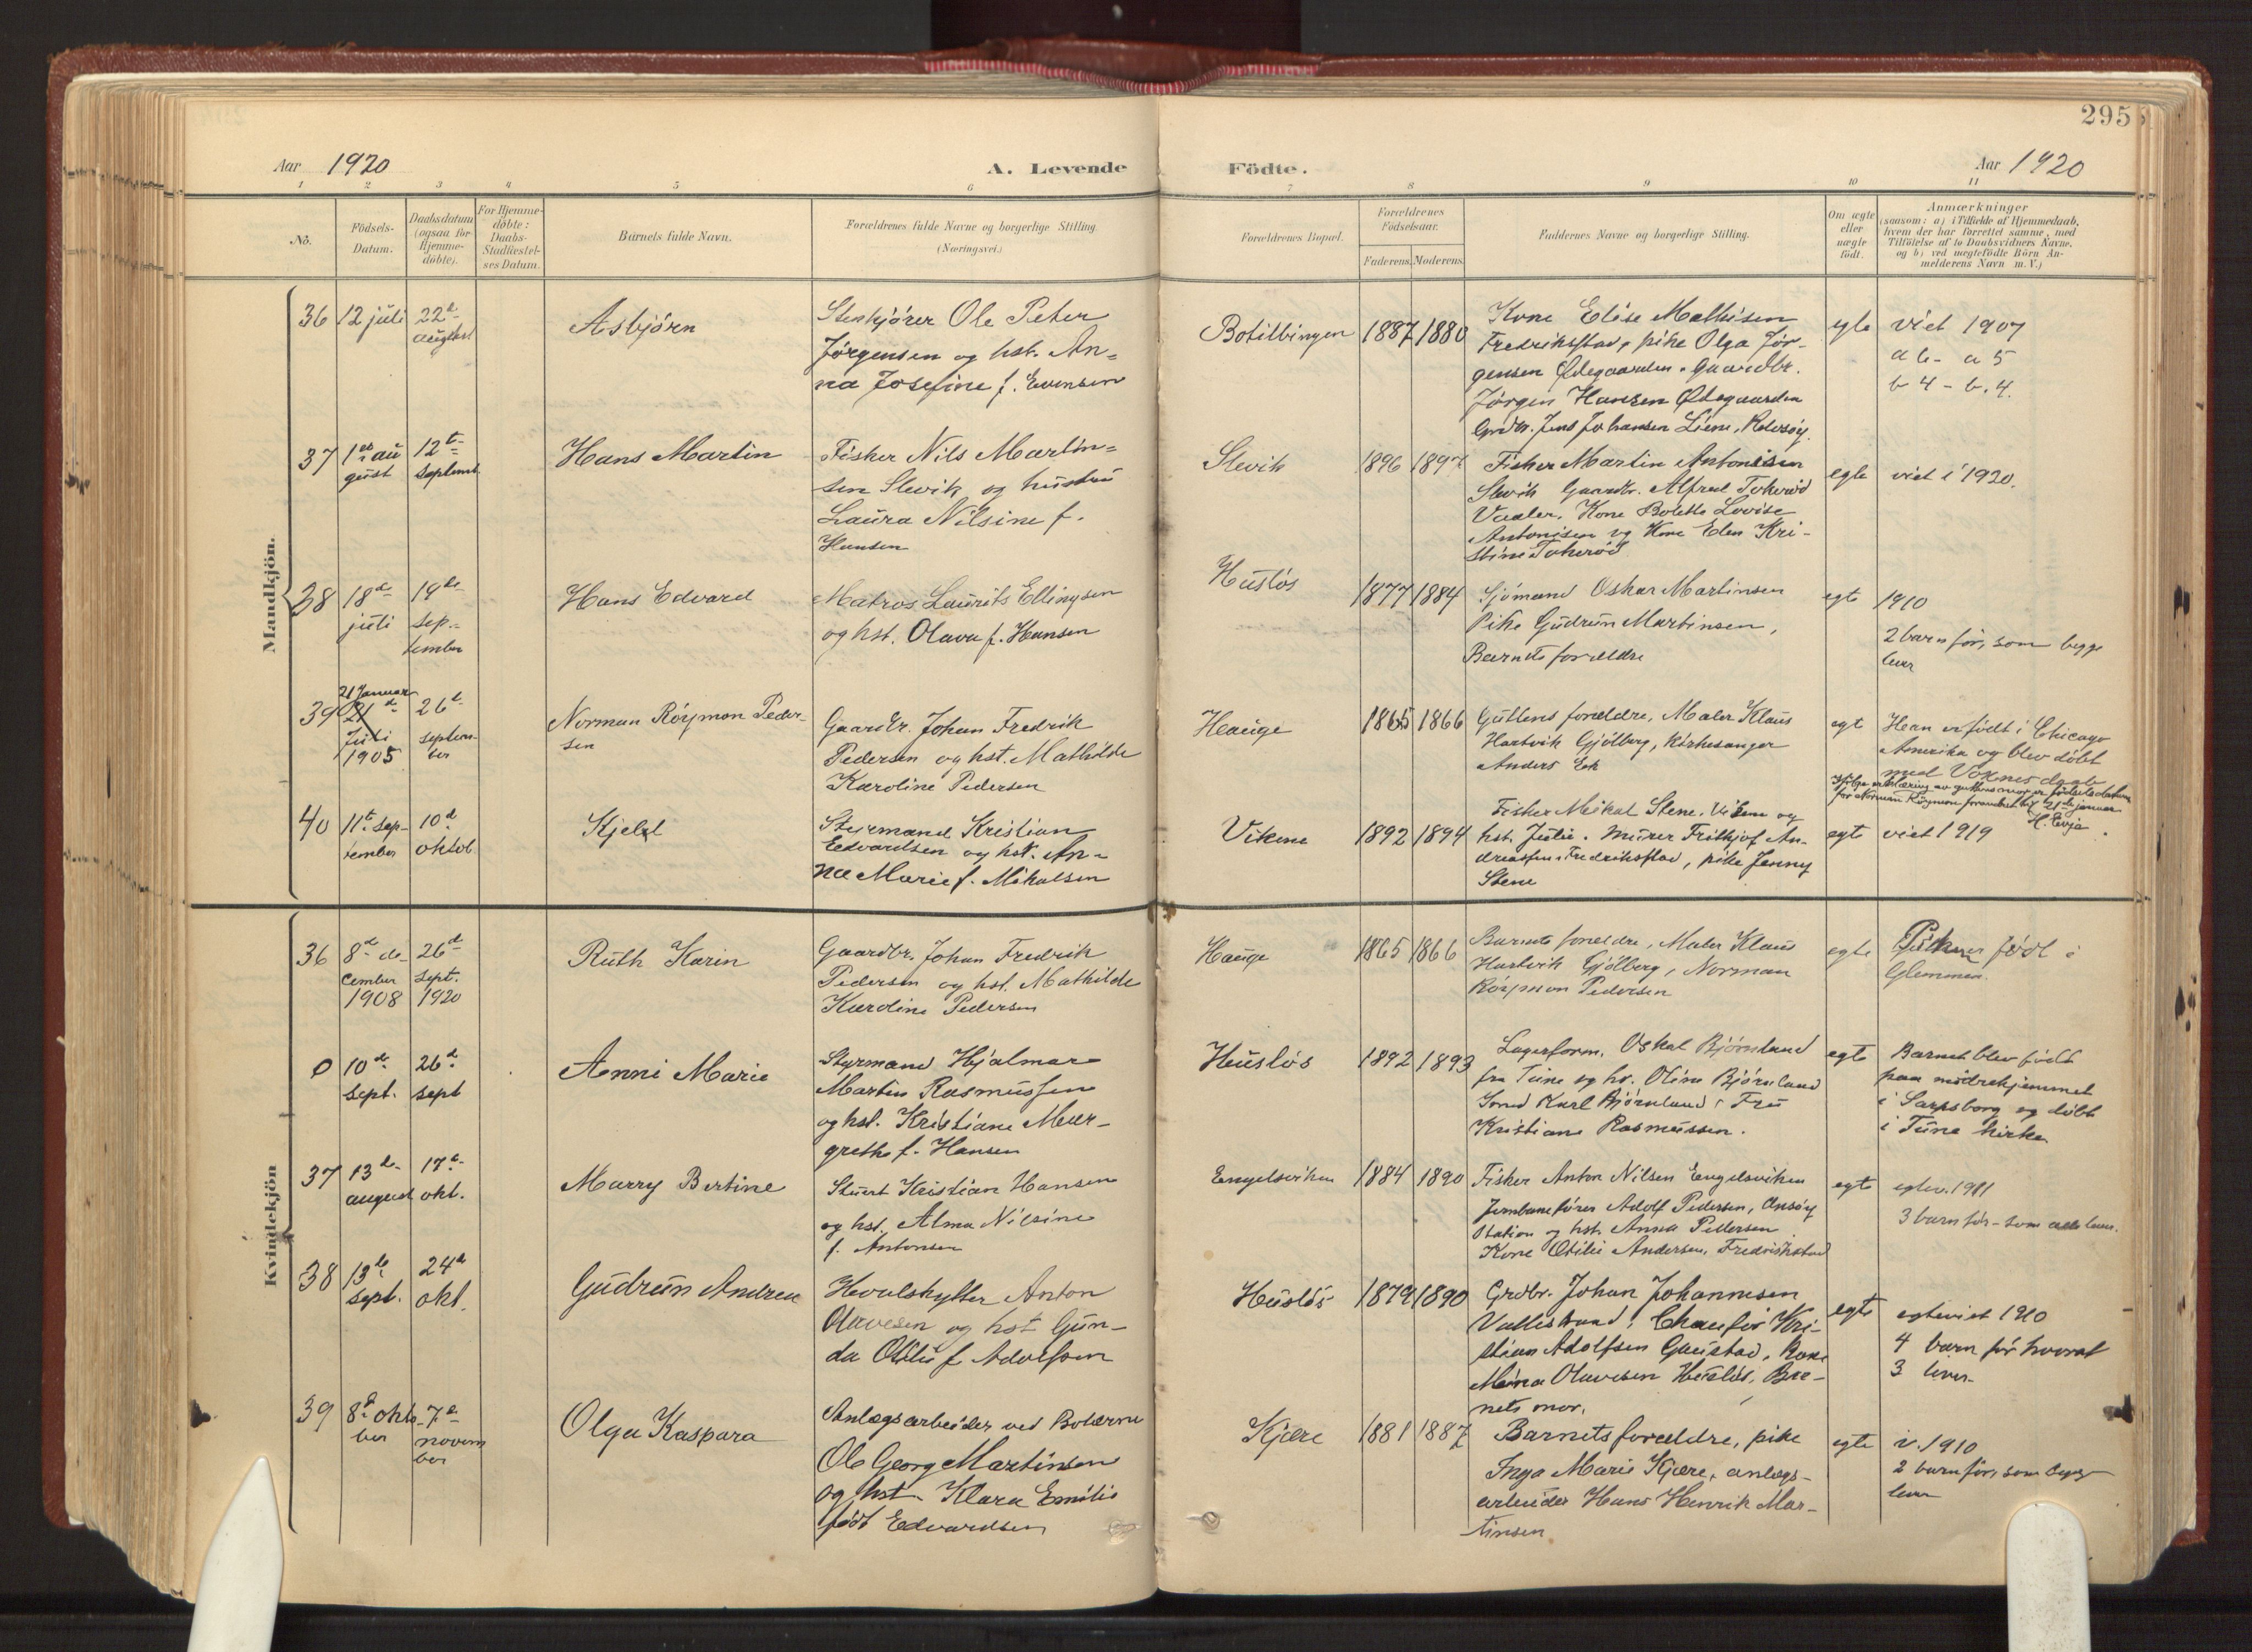 295
Aar 1920
A. Levende
Födte.
Aar 1920
1 2 3 4 5 6 7 8 9 10 11
No.
Födsels-
Datum.
Daabsdatum
(ogsaa for
Hjemme-
döbte).
For Hjemme-
döbte:
Daabs-
Stadfæstel-
ses Datum.
Barnets fulde Navn.
Forældrenes fulde Navne og borgerlige Stilling
(Næringsvei.)
Forældrenes Bopæl.
Forældrenes
Födselsaar.
Faderens. Moderens.
Faddernes Navne og borgerlige Stilling.
Om ægte
eller
uægte
födt.
Anmærkninger
(saasom: a) i Tilfælde af Hjemmedaab,
hvem der har forrettet samme, med
Tilföielse af to Daabsvidners Navne.
og b) ved uægtefödte Börn An-
melderens Navn m. V.)
Mandkjön.
36
12 juli
22d
august
Asbjörn
Stenkjörer Ole Peter
Jørgensen og hst. An=
na Josefine f. Evensen
Botilbingen
1887 1880
Kone Elise Mathisen
Fredriksstad, pike Olga Jör-
gensen Ødegaarden. Gaardbr.
Jörgen Hansen Ødegaarden
Grdbr. Jens Johansen Liene,
egte
viet 1907
b 4 - b. 4.
37
1ste au
gust
12t
septemb
Hans Martin
Fisker Nils Martin=
sen Slevik og hustru
Laura Nilsine f.
Hansen
Slevik
1896 1897
Fisker Martin Antonisen
Slevik Gaardbr. Alfred Tokeröd
Vaaler. Kone Bolette Lovise
Antonisen og Kone Elen Kri-
stine Tokeröd
egte
viet i 1920.
38
18d
juli
19de
sep-
tember
Hans Edvard
Matros Laurits Ellingsen
og hst. Olava f. Hansen
Huslös
1877 1884
Sjömand Oskar Martinsen
Pike Gudrun Martinsen,
Barnets forældre
egte
1910
2 barn för, som begge
lever
39
21 Januar
21d
Juli
1905
26d
septem-
ber
Norman Röymon Peder-
sen
Gaardbr. Johan Fredrik
Pedersen og hst. Mathilde
Karoline Pedersen
Hauge
1865 1866
Guttens forældre, Maler Klaus
Hartvik Gjölberg, Kirkesanger
Anders Ek
egt
Han er födt i Chicago
Amerika og blev döbt
med Voxnes daab
Ifölge erklæring av guttens mor er födselsdatum
for Norman Röymon forandret til 21de januar
H. Evja.
40
11t sep-
tember
10d
oktob
Kjeld
Styrmand Kristian
Edvardsen og hst. An-
na Marie f. Mikalsen
Vikene
1892 1894
Fisker Mikal Stene, Viken og
hst. Julie. Murer Frithjof An-
dreassen Fredriksstad, pike Jenny
Stene
egte
viet 1919
Kvindekjön
36
8d de-
cember
1908
26d
Sept.
1920
Ruth Karin
Gaardbr. Johan Fredrik
Pedersen og hst. Mathilde
Karoline Pedersen
Hauge
1865 1866
Barnets forældre, Maler Klaus
Hartvik Gjölberg, Norman
Röymon Pedersen
egte
Piken er födt i
Glemmen.
0
10de
sept.
26d
sept
Anni Marie
Styrmand Hjalmar
Martin Rasmussen
og hst. Kristiane Mar-
grethe f. Hansen
Huslös
1892 1893
Lagerform. Oskal Björnland
fra Tune og hr. Oline Björnland
Smed Karl Björnland, Fru
Kristiane Rasmussen.
egte
Barnet blev födt
paa mödrehjemmet
i Sarpsborg og döbt
i Tune kirke
37
13de
august
17d
okt.
Marry Bertine
Stuert Kristian Hansen
og hst. Alma Nilsine
f. Antonsen
Engelsviken
1884 1890
Fisker Anton Nilsen Engelsviken
Jernbaneförer Adolf Pedersen, Onsöy
Station og hst. Anna Pedersen.
Kone Otilie Andersen, Fredrikstad
egte
egtev. 1911
3 barn för - som alle lever.
38
13de
sept.
24d
okt.
Gudrun Andrea
Hvalskytter Anton
Olavesen og hst Gun-
da Otilie f Adolfsen
Huslös
1879 1890
Grdbr. Johan Johannesen
Vallistrand, Chaufför Kri-
stian Adolfsen Gaustad, Kone
Mina Olavesen Huslös, Bar-
nets mor.
egte
egteviet 1910
4 barn för hvorav
3 lever
39
8d okto-
ber
7de
novem
ber
Olga Kaspara
Anlægsarbeider ved Botærne
Ole Georg Martinsen
og hst. Klara Emilie
född Edvardsen
Kjære
1881 1887
Barnets forældre, pike
Inga Marie Kjære, anlægs-
arbeider Hans Henrik Mar-
tinsen
egte
v. 1910
2 barn för, som begge
lever